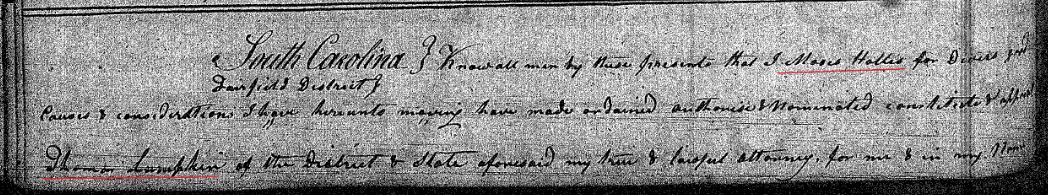 South Carolina } Know all men by these presents that I Moses Hollis for Divers good
Fairfield District }
Causes & considerations I have hereunto moving have made ordained authorise & Nominated constitute & appoint
Thomas Lumpkin of the District & State aforesaid my true & lawful attorney, for me & in my Name